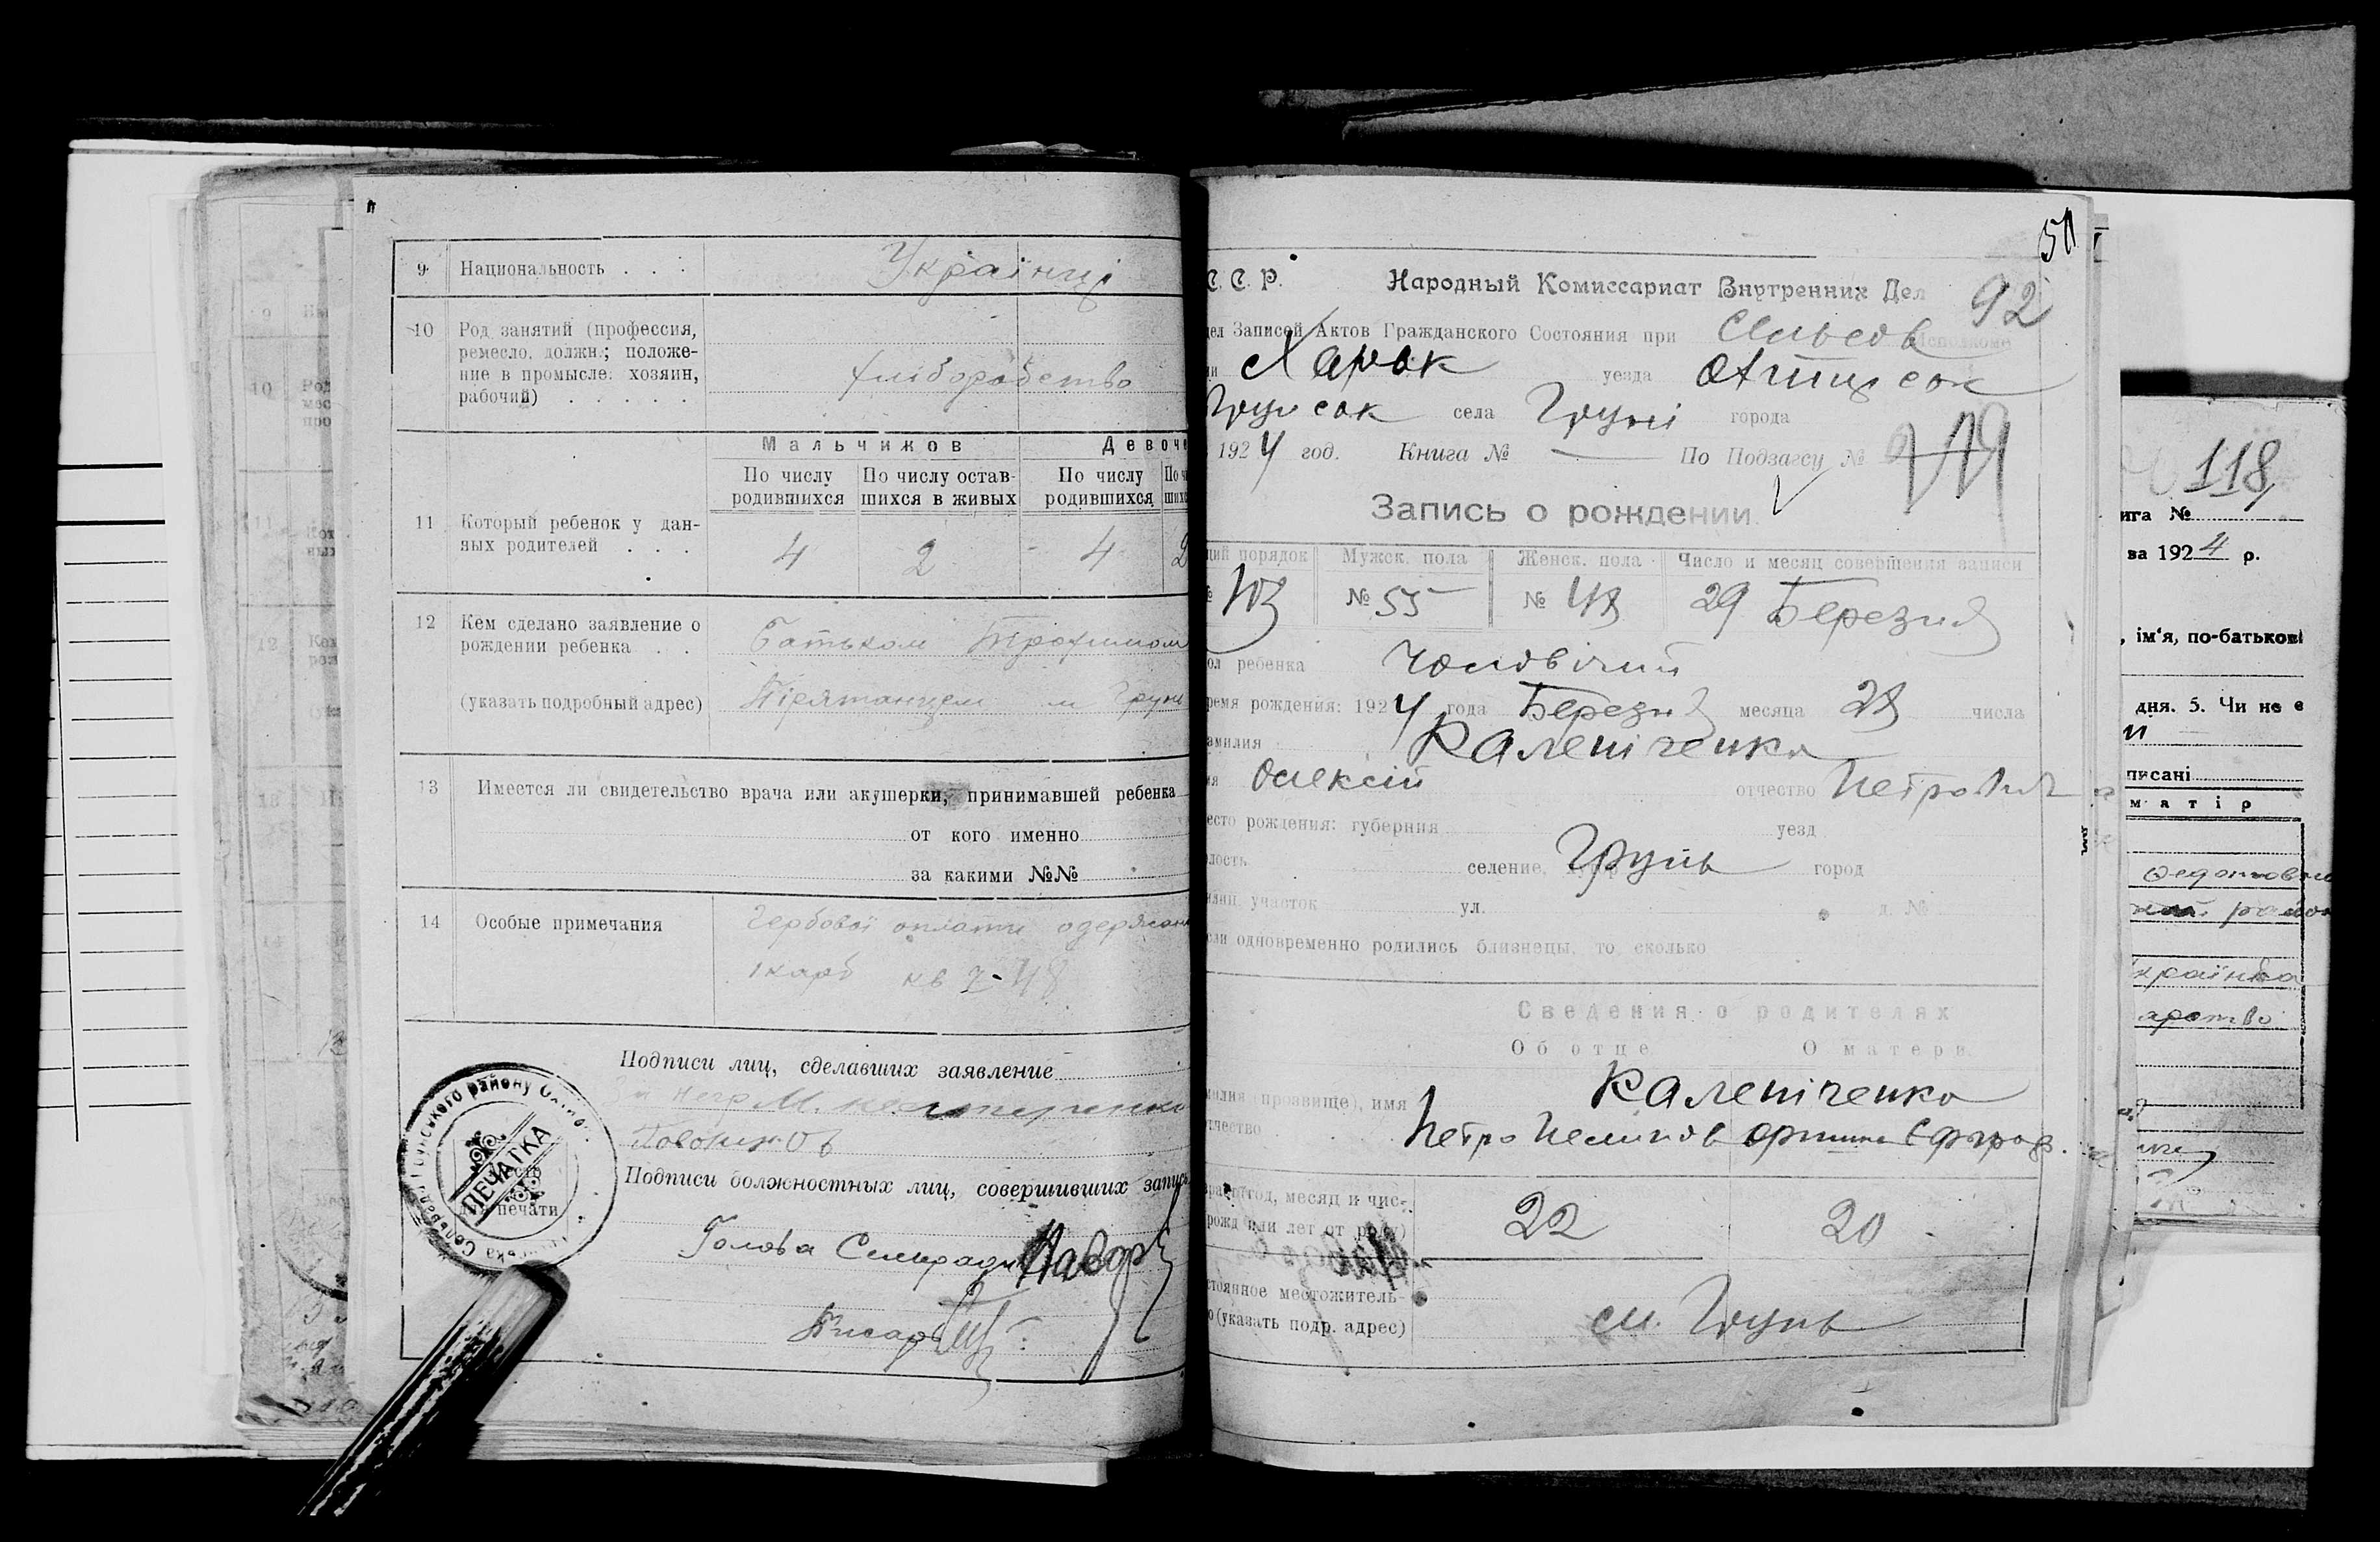 9 Национальность . . . Українці
10 Род занятий (профессия,
ремесло, должн.; положе-
ние в промысле: хозяин,
рабочий) . . . . . хліборобство
Мальчиков Девоче
По числу родившихся По числу остав-шихся в живых По числу родившихся
11 Который ребенок у дан-
ных родителей . . . 4 2 4 2
12 Кем сделано заявление о
рождении ребенка . . Батьком Трохимом
(указать подробный адрес) м Грунь
13 Имеется ли свидетельство врача или акушерки, принимавшей ребенка
от кого именно
за какими №№
14 Особые примечания Гербової оплати одержано
1 карб кв 7-48
Подписи лиц, сделавших заявление
За негр М.
Подписи должностных лиц, совершивших запись
Голова Сельради
Писарь
ПЕЧАТКА
печати
50
С. С. Р. Народный Комиссариат Внутренних Дел 92
дел Записей Актов Гражданского Состояния при Исполкоме
Харьк уезда Охтирсок
Грунсок села Груні города
1924 год. Книга № По Подзагсу №
Запись о рождении.
щий порядок Мужск. пола Женск. пола Число и месяц совершения записи
№ 103 № 55 № 48 29 Березня
ол ребенка Чоловічий
ремя рождения: 1924 года Березня месяца 28 числа
амилия Калепіченко
мя Олексій отчество Петрович
есто рождения: губерния уезд
лость селение, Грунь город
илиц. участок ул. д. №
сли одновременно родились близнецы, то сколько
Сведения о родителях
Об отце О матери
милия (прозвище), имя Калепіченко
отчество Петро
раст (год, месяц и чис-
рожд или лет от роду) 22 20
стоянное местожитель-
о (указать подр. адрес) м. Грунь
118,
ига №
ва 1924 р.
, ім'я, по-батькові
дня. 5. Чи не є
писані
матір
район
країнка